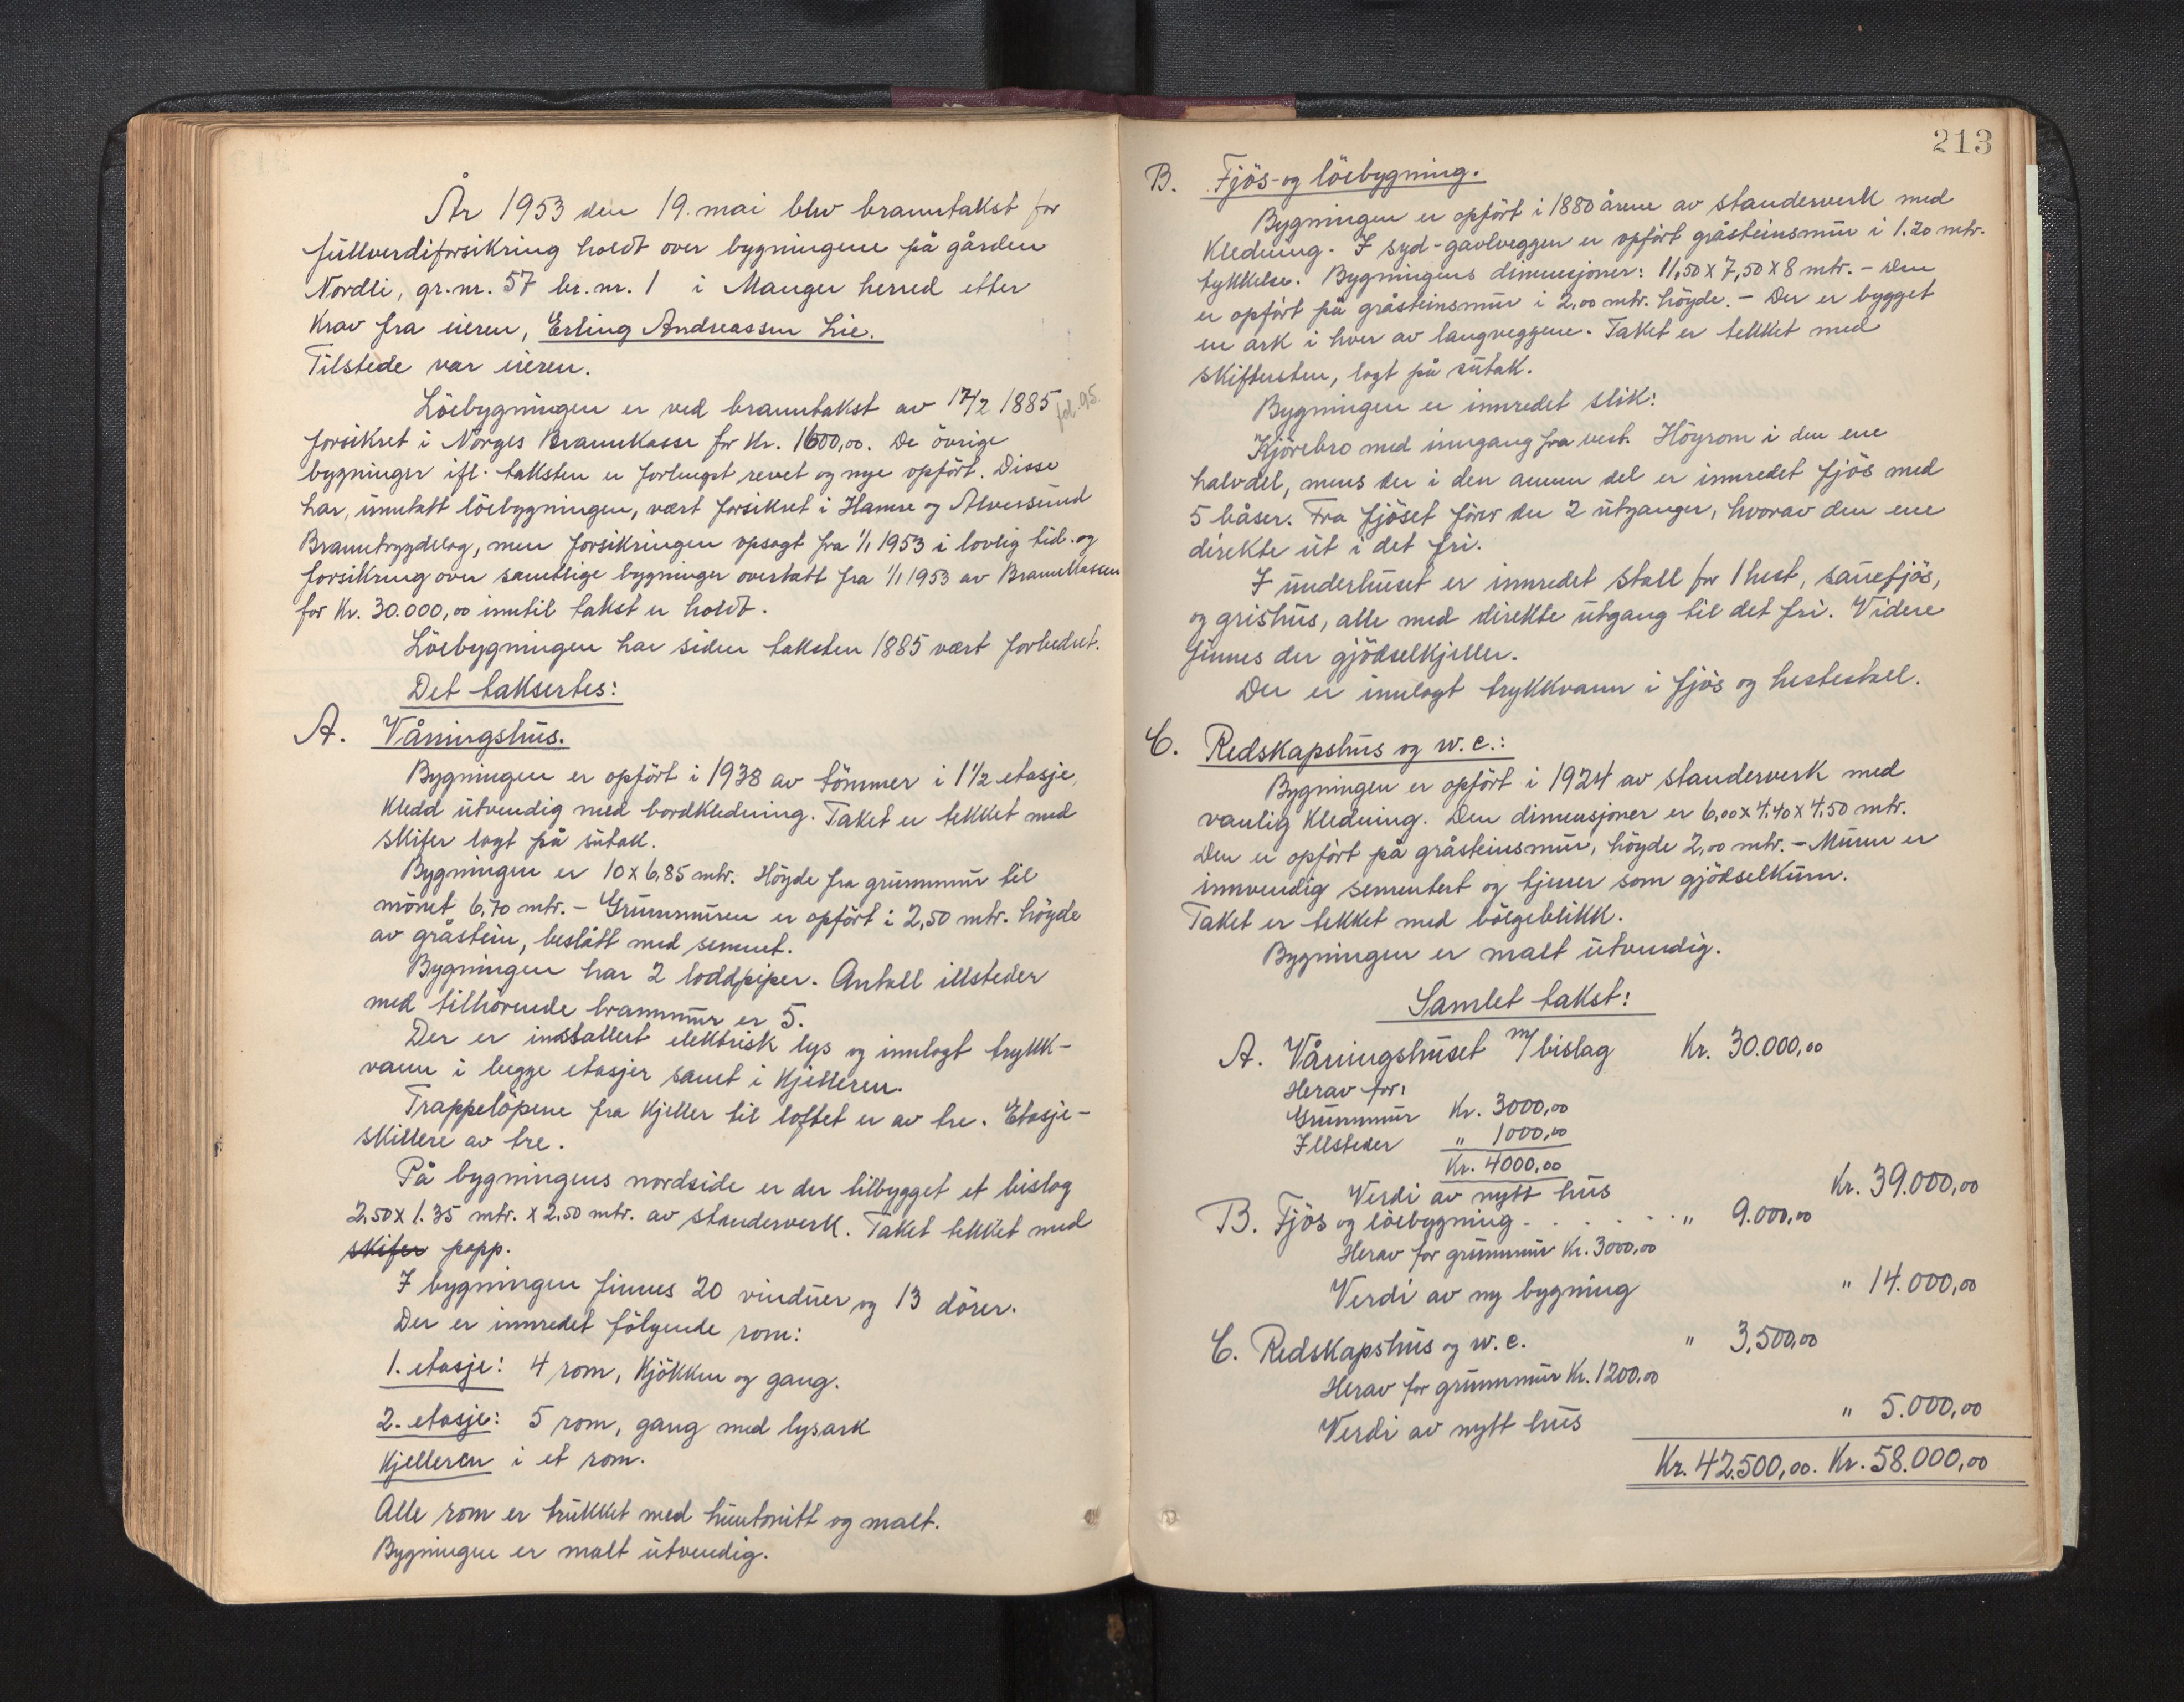 År 1953 den 19. mai blev branntakst for
fullverdiforsikring holdt over bygningene på gården
Nordli, gr.nr. 57 br.nr. 1 i Manger herred etter
krav fra eieren, Erling Andreassen Lie.
Tilstede var eieren.
Löebygningen er ved branntakst av 17/2 1885 fol. 95.
forsikret i Norges Brannkasse for kr. 1600,00. De övrige
bygninger ifl. taksten er forlengst revet og nye opfört. Disse
har, unntatt löebygningen, vært forsikret i Hamre og Alversund
Branntrygdelag, men forsikringen opsagt fra 1/1 1953 i lovlig tid. og
forsikring over samtlige bygninger overtatt fra 1/1 1953 av Brannkassen
for kr. 30.000,00 inntil takst er holdt.
Löebygningen har siden taksten 1885 vært forbedret.
Det taksertes:
A. Våningshus.
Bygningen er opfört i 1938 av tömmer i 1 1/2 etasje,
kledd utvendig med bordkledning. Taket er tekket med
skifer lagt på sutak.
Bygningen er 10 x 6,85 mtr. Höyde fra grunnmur til
mönet 6,70 mtr. - Grunnmuren er opfört i 2,50 mtr. höyde
av gråstein, beslått med sement.
Bygningen har 2 loddpiper. Antall illsteder
med tilhörende brannmur er 5.
Der er installert elektrisk lys og innlagt trykk-
vann i begge etasjer samt i kjelleren.
Trappelöpene fra kjeller til loftet er av tre. Etasje-
skillere av tre.
På bygningens nordside er der tilbygget et bislag
2,50 x 1.35 mtr. x 2,50 mtr. av standerverk. Taket tekket med
skifer papp.
I bygningen finnes 20 vinduer og 13 dörer.
Der er innredet fölgende rom:
1. etasje: 4 rom, kjökken og gang.
2. etasje: 5 rom, gang med lysark
Kjelleren i et rom.
Alle rom er trukket med huntonitt og malt.
Bygningen er malt utvendig.
213
B. Fjös- og löebygning.
Bygningen er opfört i 1880 årene av standerverk med
kledning. I syd-gavlveggen er opfört gråsteinsmur i 1.20 mtr.
tykkelse. Bygningens dimensjoner: 11,50 x 7,50 x 8 mtr. - Den
er opfört på gråsteinsmur i 2,00 mtr. höyde. - Der er bygget
en ark i hver av langveggene. Taket er tekket med
skiferstein, lagt på sutak.
Bygningen er innredet slik:
Kjörebro med inngang fra vest. Höyrom i den ene
halvdel, mens der i den annen del er innredet fjös med
5 båser. Fra fjöset förer der 2 utganger, hvorav den ene
direkte ut i det fri.
I underhuset er innredet stall for 1 hest, sauefjös,
og grishus, alle med direkte utgang til det fri. Videre
finnes der gjödselkjeller.
Der er innlagt trykkvann i fjös og hestestall.
C. Redskapshus og w.c.:
Bygningen er opfört i 1924 av standerverk med
vanlig kledning. Den dimensjoner er 6,00 x 4,40 x 4,50 mtr.
Den er opfört på gråsteinsmur, höyde 2,00 mtr. - Muren er
innvendig sementert og tjener som gjödselkum.
Taket er tekket med bölgeblikk.
Bygningen er malt utvendig.
Samlet takst:
A. Våningshuset m/bislag Kr. 30.000,00
Herav for:
Grunnmur Kr. 3000,00
Illsteder " 1000,00
Kr. 4000,00
Verdi av nytt hus Kr. 39.000,00
B. Fjös og löebygning - . . . . . " 9.000,00
Herav for grunnmur Kr. 3000,00
Verdi av ny bygning " 14.000,00
C. Redskapshus og w.c. " 3.500,00
Herav for grunnmur Kr. 1200,00
Verdi av nytt hus " 5.000,00
Kr. 42.500,00. Kr. 58.000,00